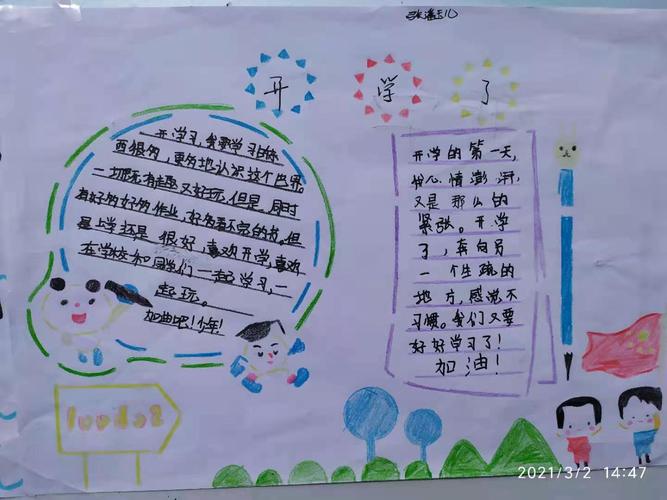 开 学 了
开学习,我要学习的东
西很多,更多地认识这个世界,
一切既有趣又好玩,但是,同时
有好多好多作业,好多看不完的书,但
是上学还是很好,喜欢开学,喜欢
在学校和同学们一起学习,一
起玩。
吧!少年!
开学的第一天,
心情澎湃,
又是那么的
紧张。开学
了,有向另
一个生疏的
地方,感觉不
习惯。我们又要
好好学习了!
加油!
2021/3/2 14:47